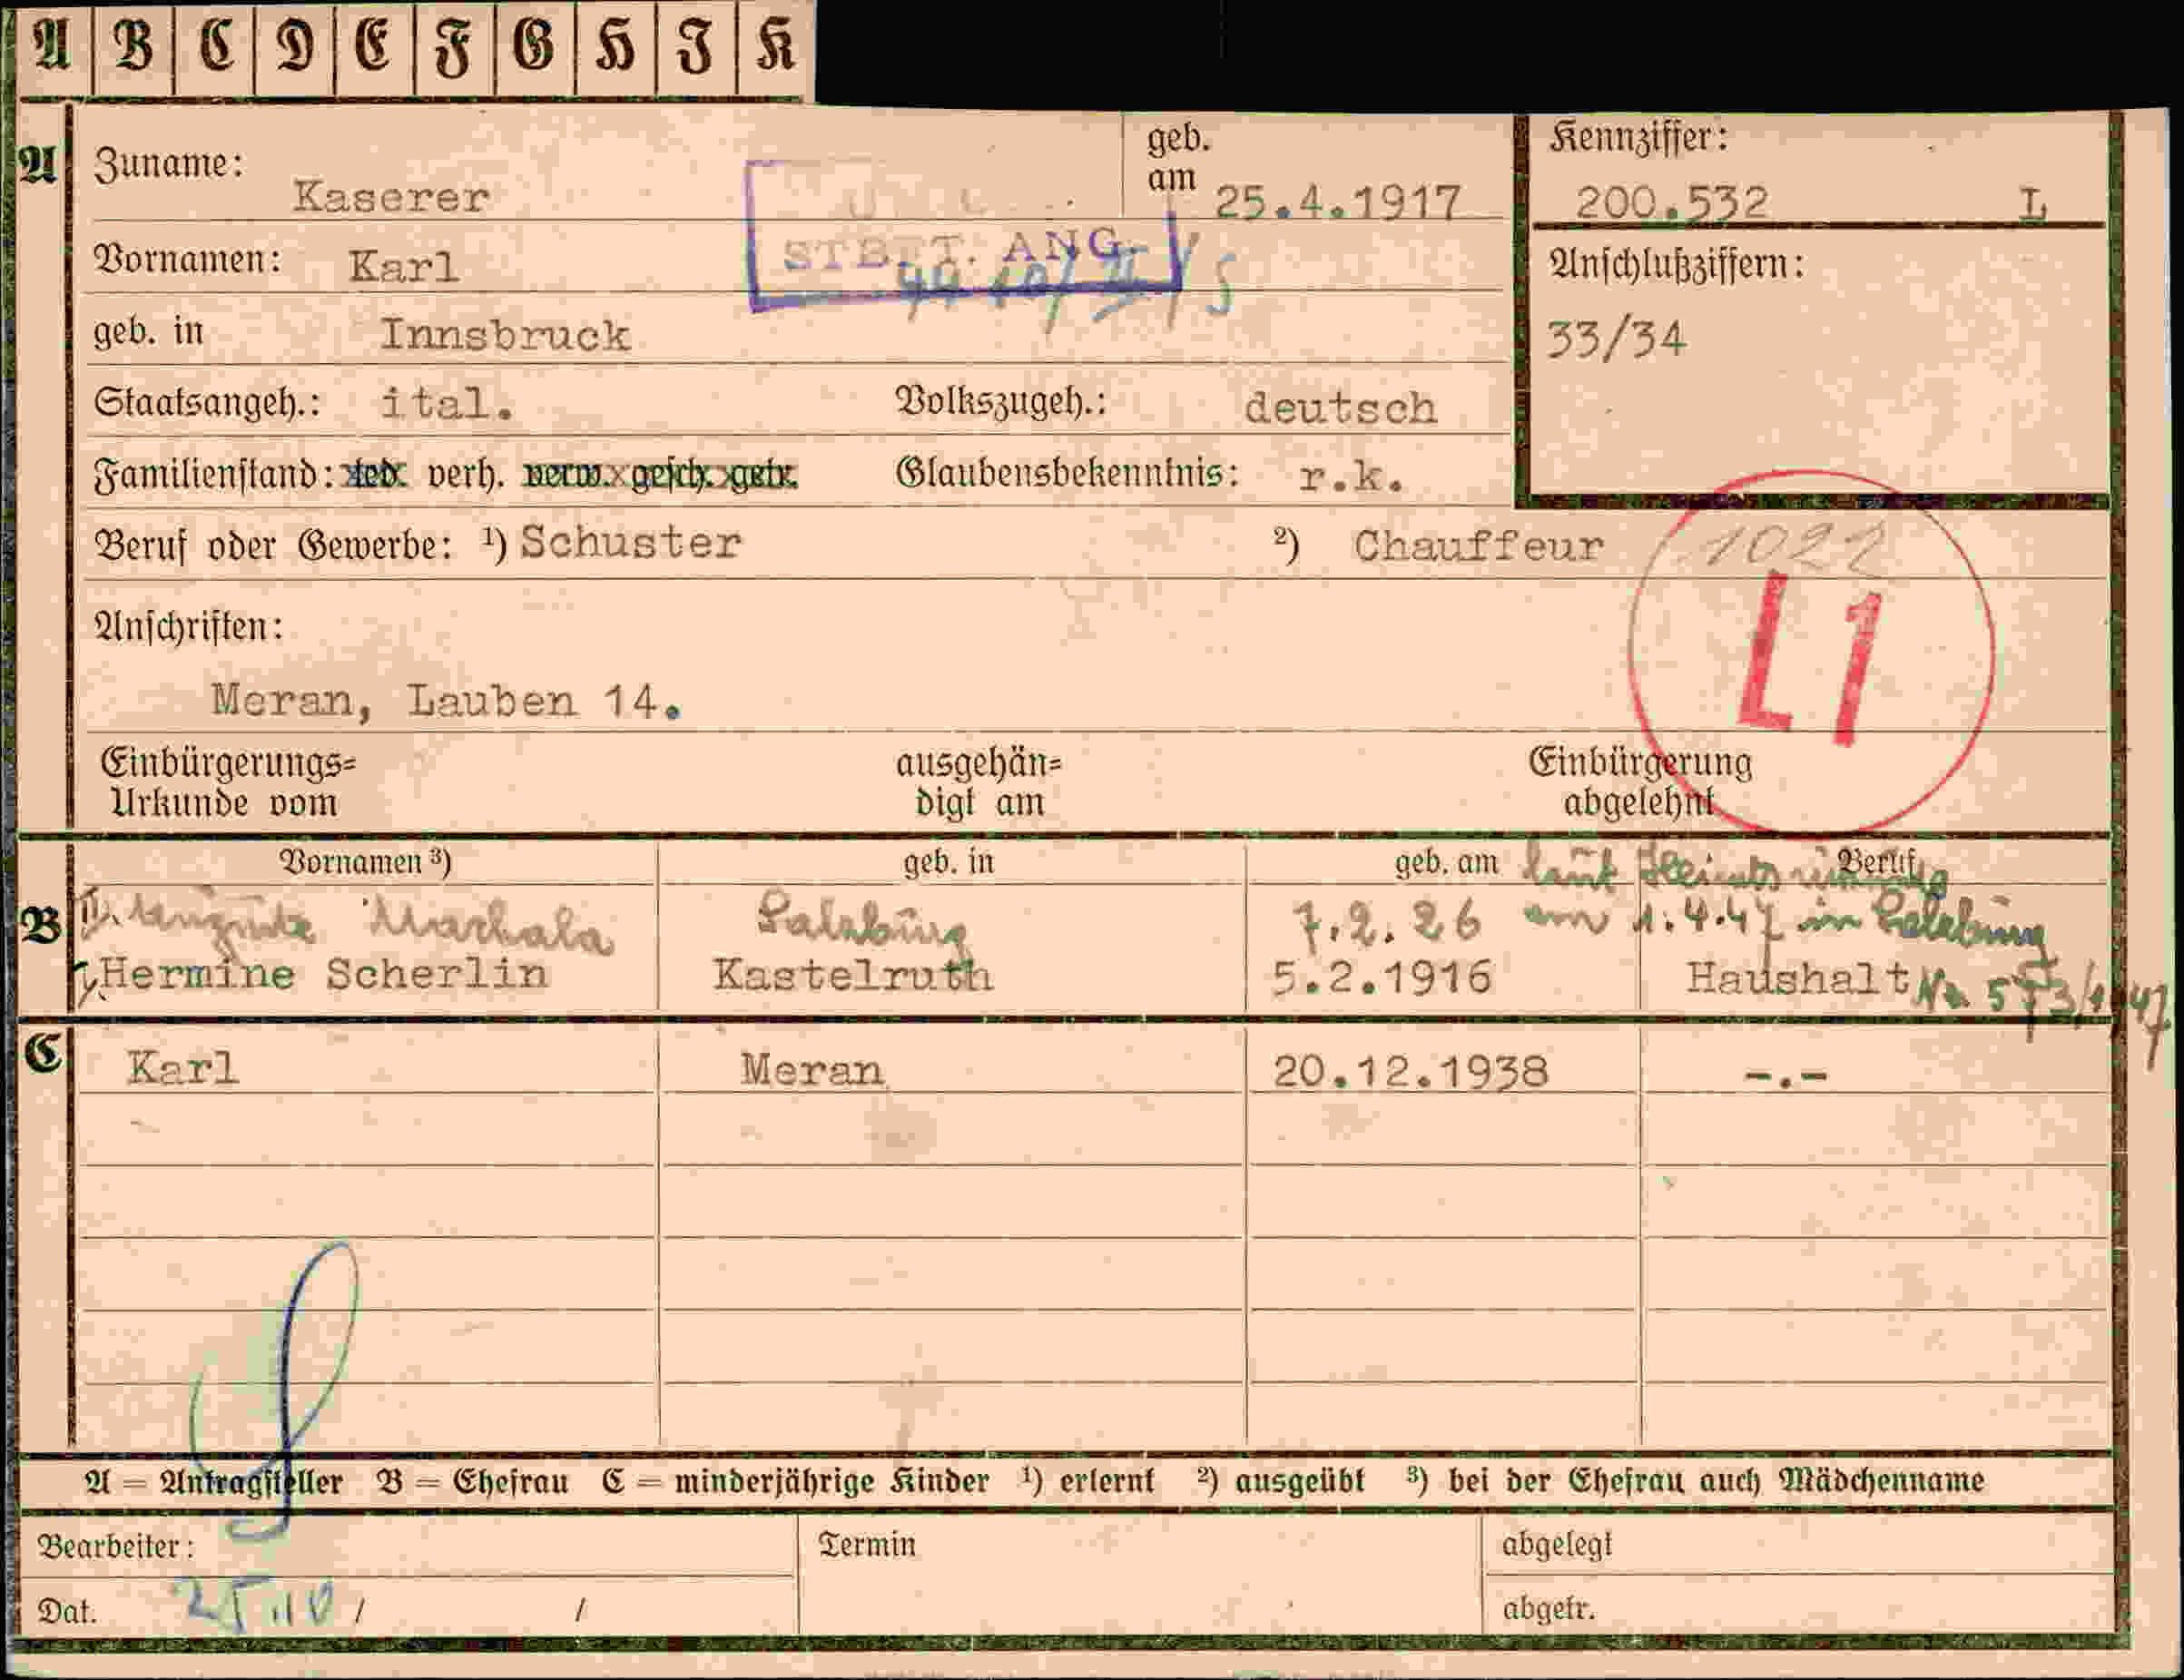 A B C D E F G H J K
A
Zuname: Kaserer
geb. am 25.4.1917
Kennziffer:
200.532 L
Vornamen: Karl
STB. T. ANG.
Anschlußziffern:
33/34
geb. in Innsbruck
Staatsangeh.: ital. Volkszugeh.: deutsch
Familienstand: led. verh. verw. gesch. getr. Glaubensbekenntnis: r.k.
Beruf oder Gewerbe: ¹) Schuster ²) Chauffeur
1022
L1
Anschriften:
Meran, Lauben 14.
Einbürgerungs=
Urkunde vom
ausgehän=
digt am
Einbürgerung
abgelehnt
Vornamen ³) geb. in geb. am Beruf
laut
B
II. Auguste Machala Salzburg 7.2.26 am 1.4.47 in Salzburg
1, Hermine Scherlin Kastelruth 5.2.1916 Haushalt No. 573/1947
C
Karl Meran 20.12.1938 -.-
A = Antragsteller B = Ehefrau C = minderjährige Kinder ¹) erlernt ²) ausgeübt ³) bei der Ehefrau auch Mädchenname
Bearbeiter: Termin abgelegt
Dat. 25.10 / / abgetr.